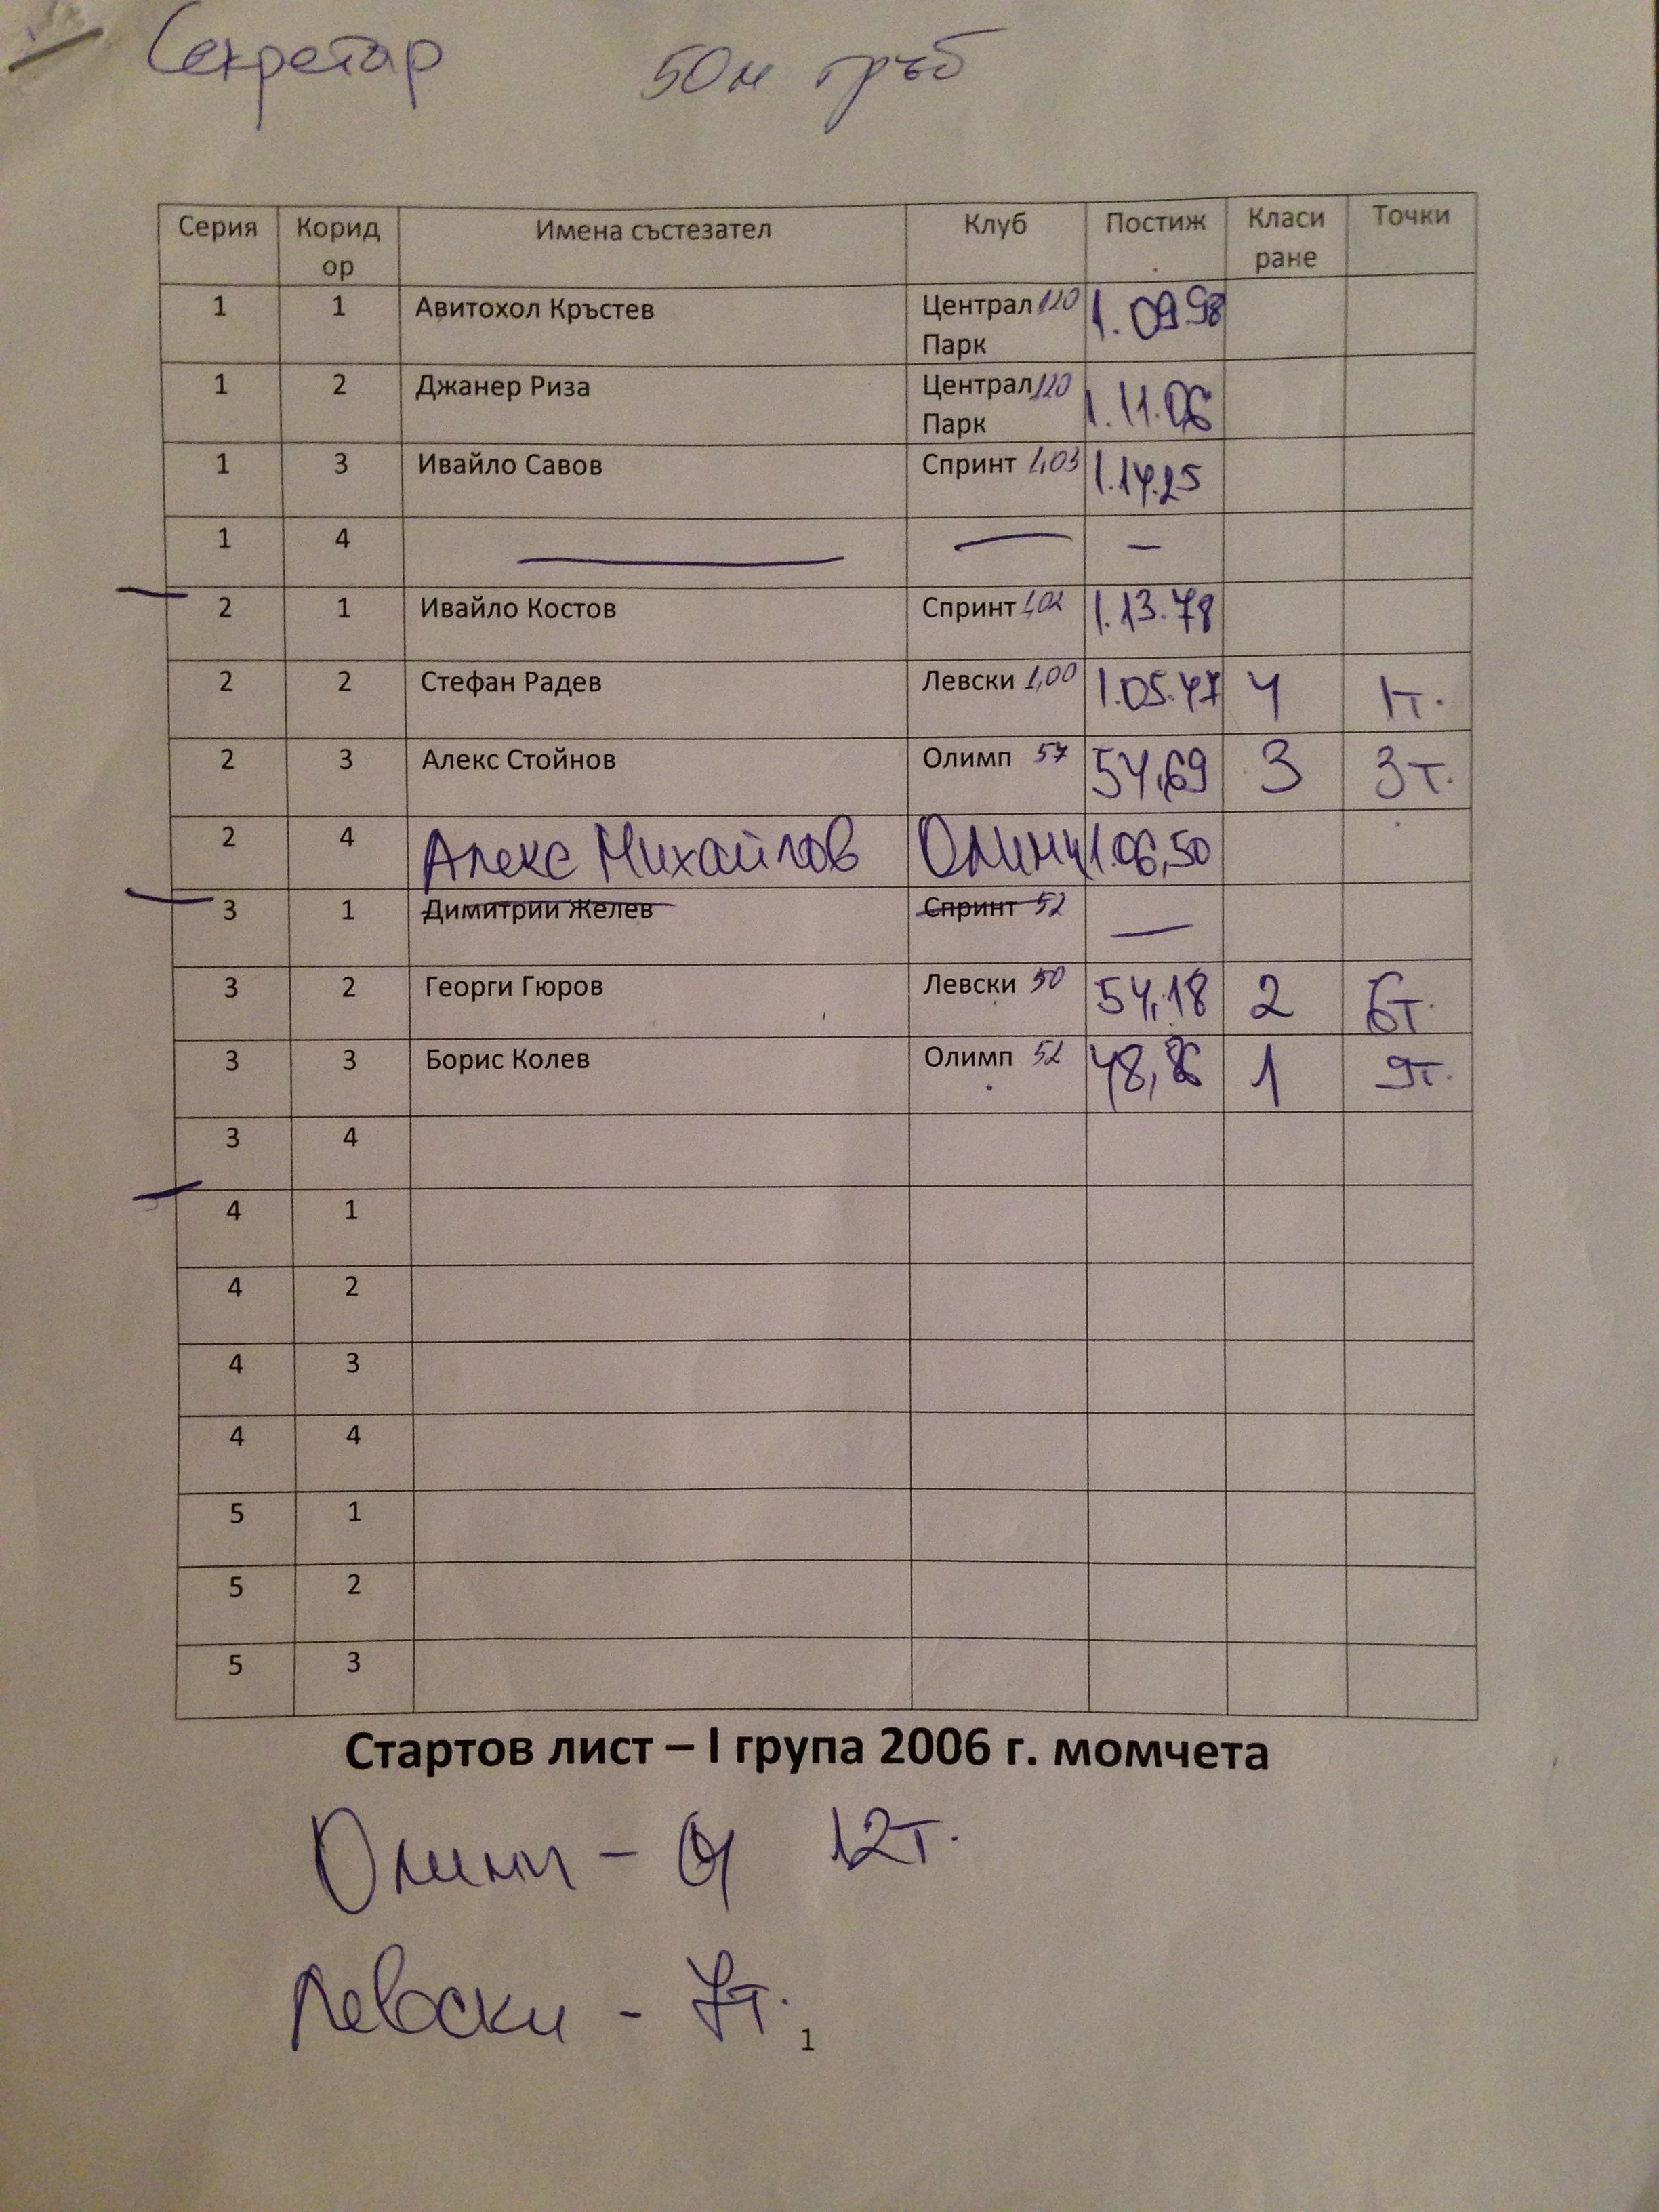 Секретар 50м гръб
Серия Коридор Имена състезател Клуб Постиж. Класиране Точки
1 1 Авитохол Кръстев Централ Парк 1 20 1.09.98
1 2 Джанер Риза Централ Парк 1 20 1.11.06
1 3 Ивайло Савов Спринт 1,03 1.14.25
1 4 — — —
2 1 Ивайло Костов Спринт 1,02 1.13.78
2 2 Стефан Радев Левски 1,00 1.05.47 4 1т.
2 3 Алекс Стойнов Олимп 57 54,69 3 3т.
2 4 Алекс Михайлов Олимп 1.06,50
3 1 Димитрий Желев Спринт 52 —
3 2 Георги Гюров Левски 50 54,18 2 6т.
3 3 Борис Колев Олимп 52 48,86 1 9т.
3 4
4 1
4 2
4 3
4 4
5 1
5 2
5 3
Стартов лист – I група 2006 г. момчета
Олимп – 12т.
Левски - 7т.
1